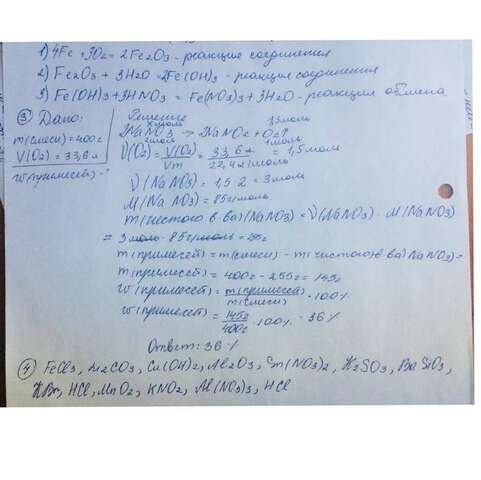 1) 4Fe + 3O2 = 2Fe2O3 - реакция соединения
2) Fe2O3 + 3H2O = 2Fe(OH)3 - реакция соединения
3) Fe(OH)3 + 3HNO3 = Fe(NO3)3 + 3H2O - реакция обмена
③ Дано: Решение
m(смеси) = 400г
V(O2) = 33,6 л
w(примесей) - ?
x моль 1,5 моль
2NaNO3 → 2NaNO2 + O2↑
2моль 1моль
ν(O2) = V(O2)/Vm = 33,6 л/22,4 л/моль = 1,5 моль
ν(NaNO3) = 1,5·2 = 3 моль
M(NaNO3) = 85 г/моль
m(чистого в-ва)(NaNO3) = ν(NaNO3) · M(NaNO3)
= 3 моль · 85 г/моль = 255г
m(примесей) = m(смеси) - m(чистого в-ва) NaNO3 =
m(примесей) = 400г - 255г = 145г
w(примесей) = m(примесей)/m(смеси) · 100%
w(примесей) = 145г/400г · 100% = 36%
Ответ: 36%
④ FeCl3, Li2CO3, Cu(OH)2, Al2O3, Sn(NO3)2, K2SO3, BaSiO3,
KBr, HCl, MnO2, KNO2, Al(NO3)3, HCl